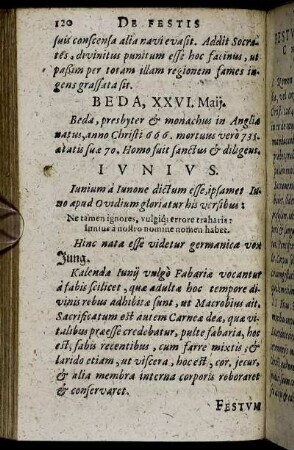 120 DE FESTIS
suis conscensa alia navi evasit. Addit Socra-
tes, divinitus punitum esse hoc facinus, ut
passim per totam illam regionem fames in-
gens grassata sit.
BEDA, XXVI. Maij.
Beda, presbyter & monachus in Anglia
natus, anno Christi 666. mortuus vero 735.
ætatis suæ 70. Homo fuit sanctus & diligens.
IVNIVS.
Iunium à Iunone dictum esse, ipsamet Iu-
no apud Ovidium gloriatur his versibus:
Ne tamen ignores, vulgiq; errore traharis:
Iunius à nostro nomine nomen habet.
Hinc nata esse videtur germanica vox
Jung.
Kalendæ Iunij vulgò Fabariæ vocantur
à fabis scilicet, quæ adultæ hoc tempore di-
vinis rebus adhibitæ sunt, ut Macrobius ait.
Sacrificatum est autem Carneæ deæ, quæ vi-
talibus præesse credebatur, pulte fabaria, hoc
est, fabis recentibus, cum farre mixtis, &
larido etiam, ut viscera, hoc est, cor, jecur,
& alia membra interna corporis roboraret
& conservaret.
FESTVM